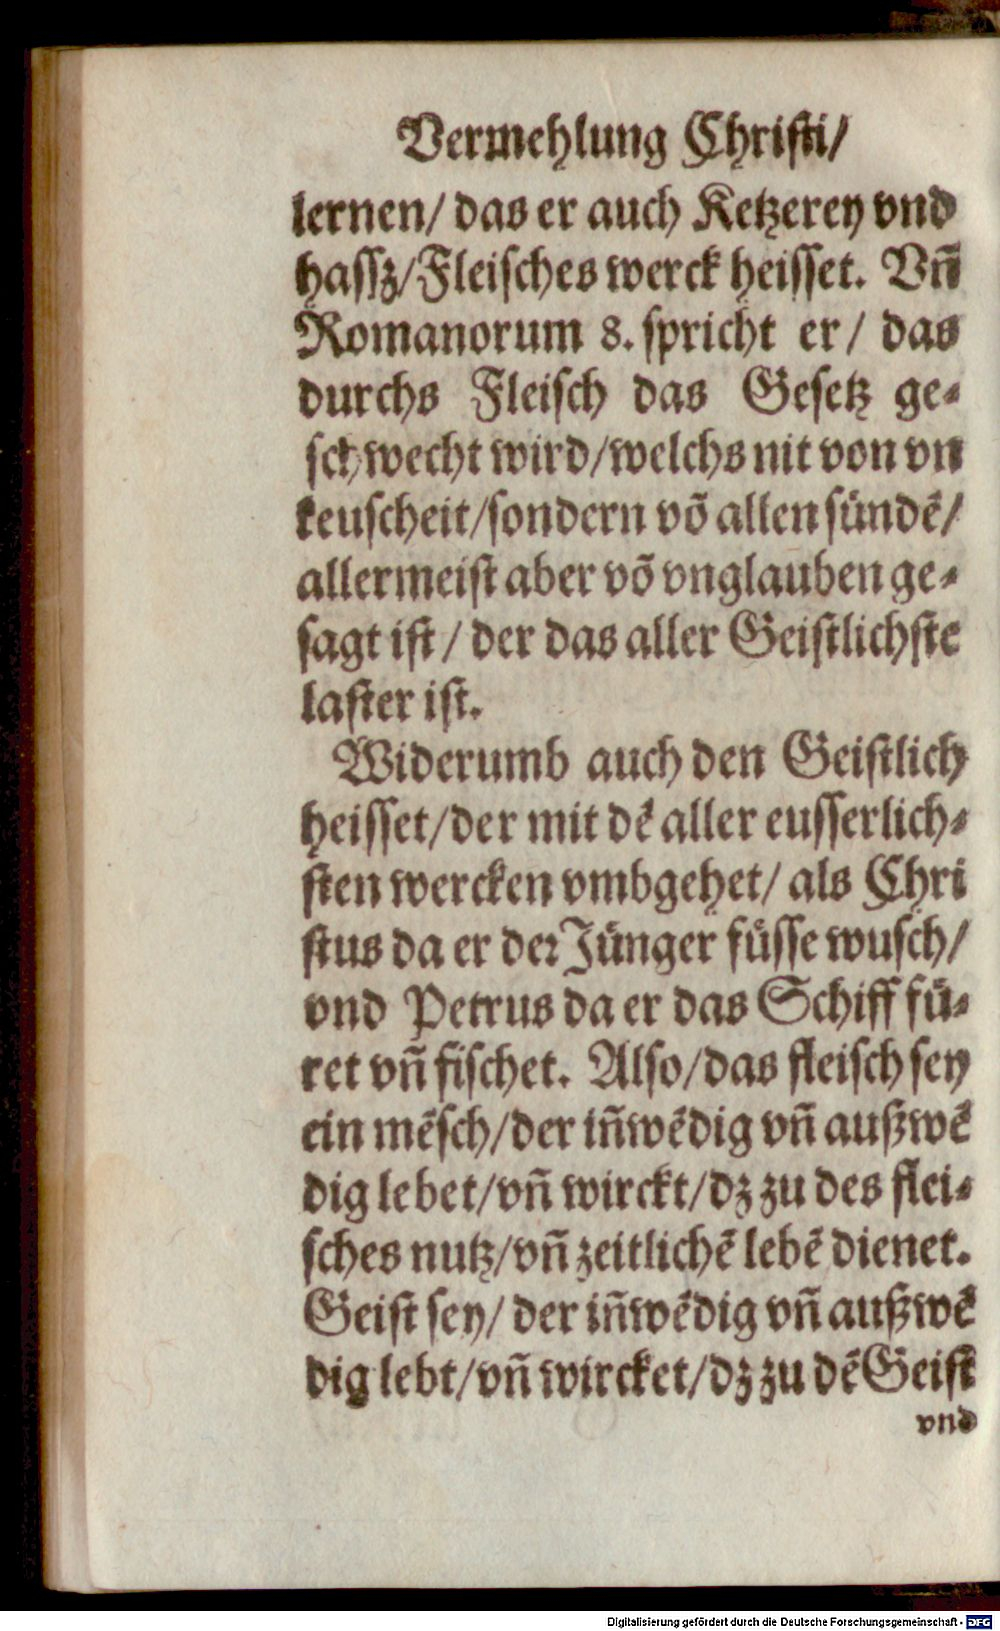 Vermehlung Christi/
lernen/ das er auch Ketzerey vnd
hassz/Fleisches werck heisset. Vñ
Romanorum 8. spricht er/ das
durchs Fleisch das Gesetz ge-
schwecht wird/welchs nit von vn
keuscheit/sondern võ allen sündẽ/
allermeist aber võ vnglauben ge-
sagt ist/ der das aller Geistlichste
laster ist.
Widerumb auch den Geistlich
heisset/der mit dẽ aller eusserlich-
sten wercken vmbgehet/ als Chri
stus da er der Jünger füsse wusch/
vnd Petrus da er das Schiff fü-
ret vñ fischet. Also/das fleisch sey
ein mẽsch/der iñwẽdig vñ außwẽ
dig lebet/vñ wirckt/dz zu des flei-
sches nutz/vñ zeitlichẽ lebẽ dienet.
Geist sey/ der iñwẽdig vñ außwẽ
dig lebt/vñ wircket/dz zu dẽ Geist
vnd
Digitalisierung gefördert durch die Deutsche Forschungsgemeinschaft - DFG